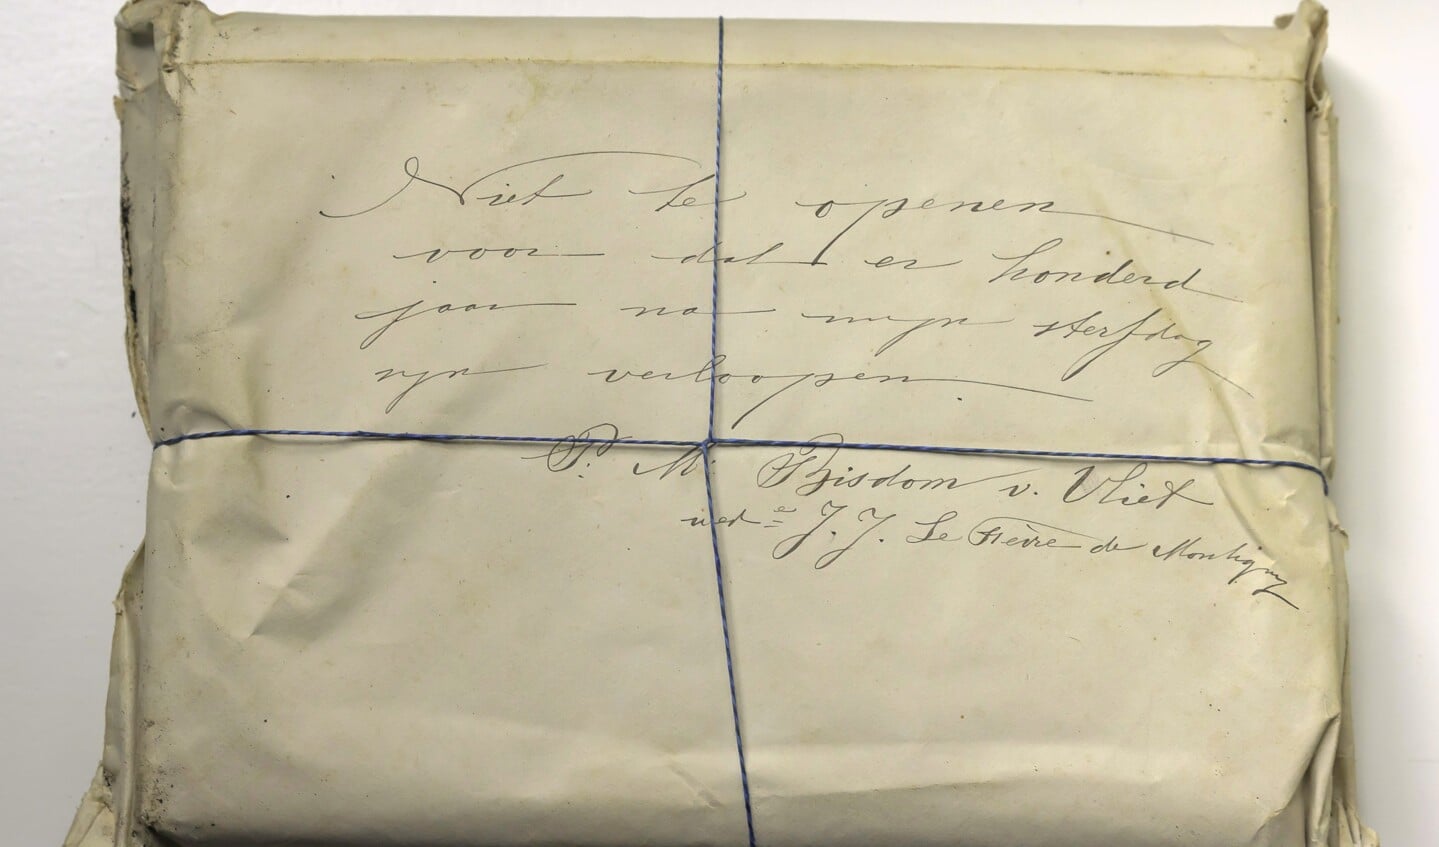 Niet te openen
voor dat er honderd
jaar na mijn sterfdag
zijn verloopen
P. M. Bisdom v. Vliet
wed^e J. J. Le Fèvre de Montigny